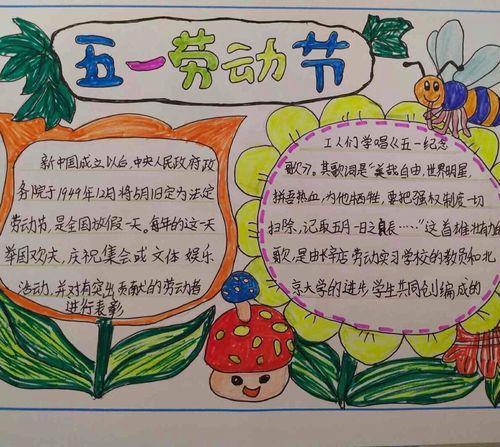 五一劳动节
新中国成立以后,中央人民政府政
务院于1949年12月将5月1日定为法定
劳动节,是全国放假一天。每年的这一天
举国欢庆,庆祝集会或文体娱乐
活动,并对有突出贡献的劳动者
进行表彰
工人们学唱《五一纪念
歌》。其歌词是"美哉自由,世界明星,
拼吾热血,为他牺牲,要把强权制度一切
扫除,记取五月一日之良辰……"这首雄壮有力的
歌,是由长辛店劳动实习学校的教员和北
京大学的进步学生共同创编成的